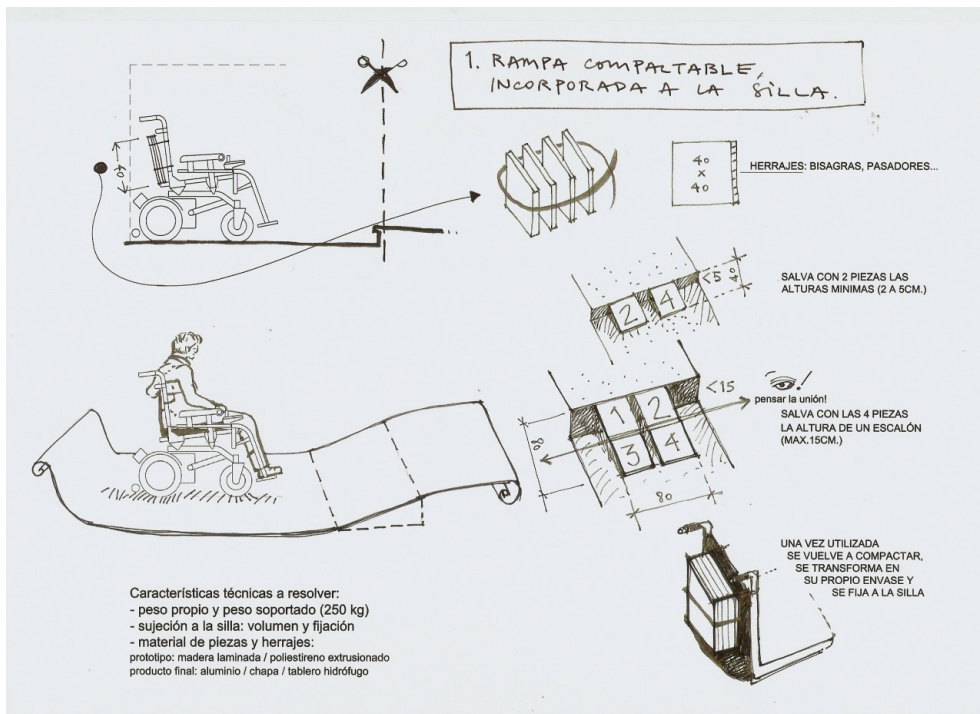 1. RAMPA COMPACTABLE,
INCORPORADA A LA SILLA.
40
40
x
40
HERRAJES: BISAGRAS, PASADORES...
2 4
<5
40
SALVA CON 2 PIEZAS LAS
ALTURAS MINIMAS (2 A 5CM.)
1 2
3 4
<15
80
80
pensar la unión!
SALVA CON LAS 4 PIEZAS
LA ALTURA DE UN ESCALÓN
(MAX.15CM.)
UNA VEZ UTILIZADA
SE VUELVE A COMPACTAR,
SE TRANSFORMA EN
SU PROPIO ENVASE Y
SE FIJA A LA SILLA
Características técnicas a resolver:
- peso propio y peso soportado (250 kg)
- sujeción a la silla: volumen y fijación
- material de piezas y herrajes:
prototipo: madera laminada / poliestireno extrusionado
producto final: aluminio / chapa / tablero hidrófugo